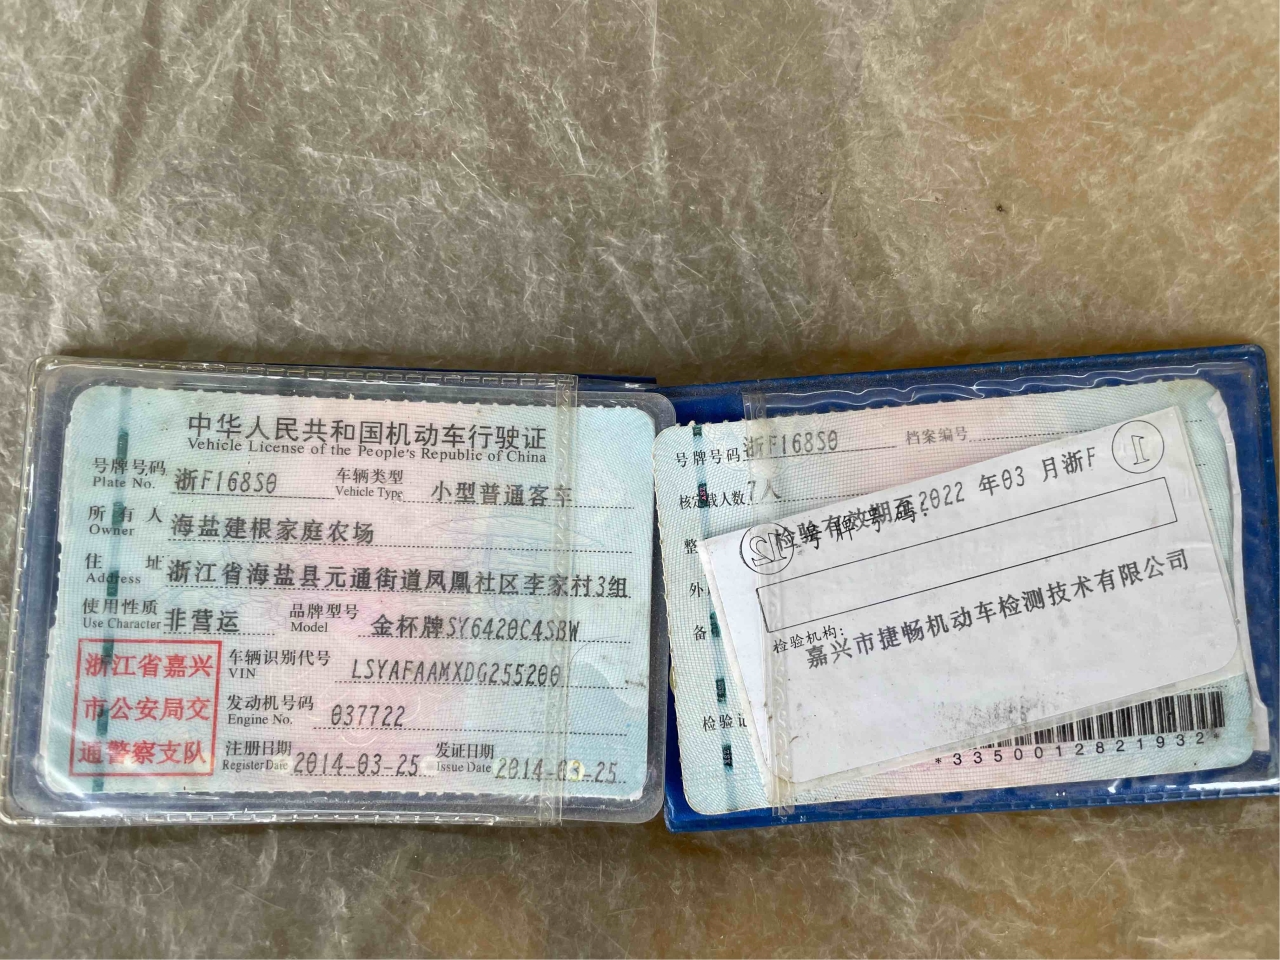 中华人民共和国机动车行驶证
Vehicle License of the People's Republic of China
号牌号码 浙F168S0 车辆类型 小型普通客车
Plate No. Vehicle Type
所有人 海盐建根家庭农场
Owner
住址 浙江省海盐县元通街道凤凰社区李家村3组
Address
使用性质 非营运 品牌型号 金杯牌SY6420C4SBW
Use Character Model
浙江省嘉兴
市公安局交
通警察支队
车辆识别代号 LSYAFAAMXDG255200
VIN
发动机号码 037722
Engine No.
注册日期 2014-03-25 发证日期 2014-03-25
Register Date Issue Date
号牌号码 浙F168S0 档案编号
核定载人数 7人
整
外
备
检验记
①
检验有效期至2022 年03 月浙F
② 号牌号码:
检验机构:
嘉兴市捷畅机动车检测技术有限公司
*3350012821932*